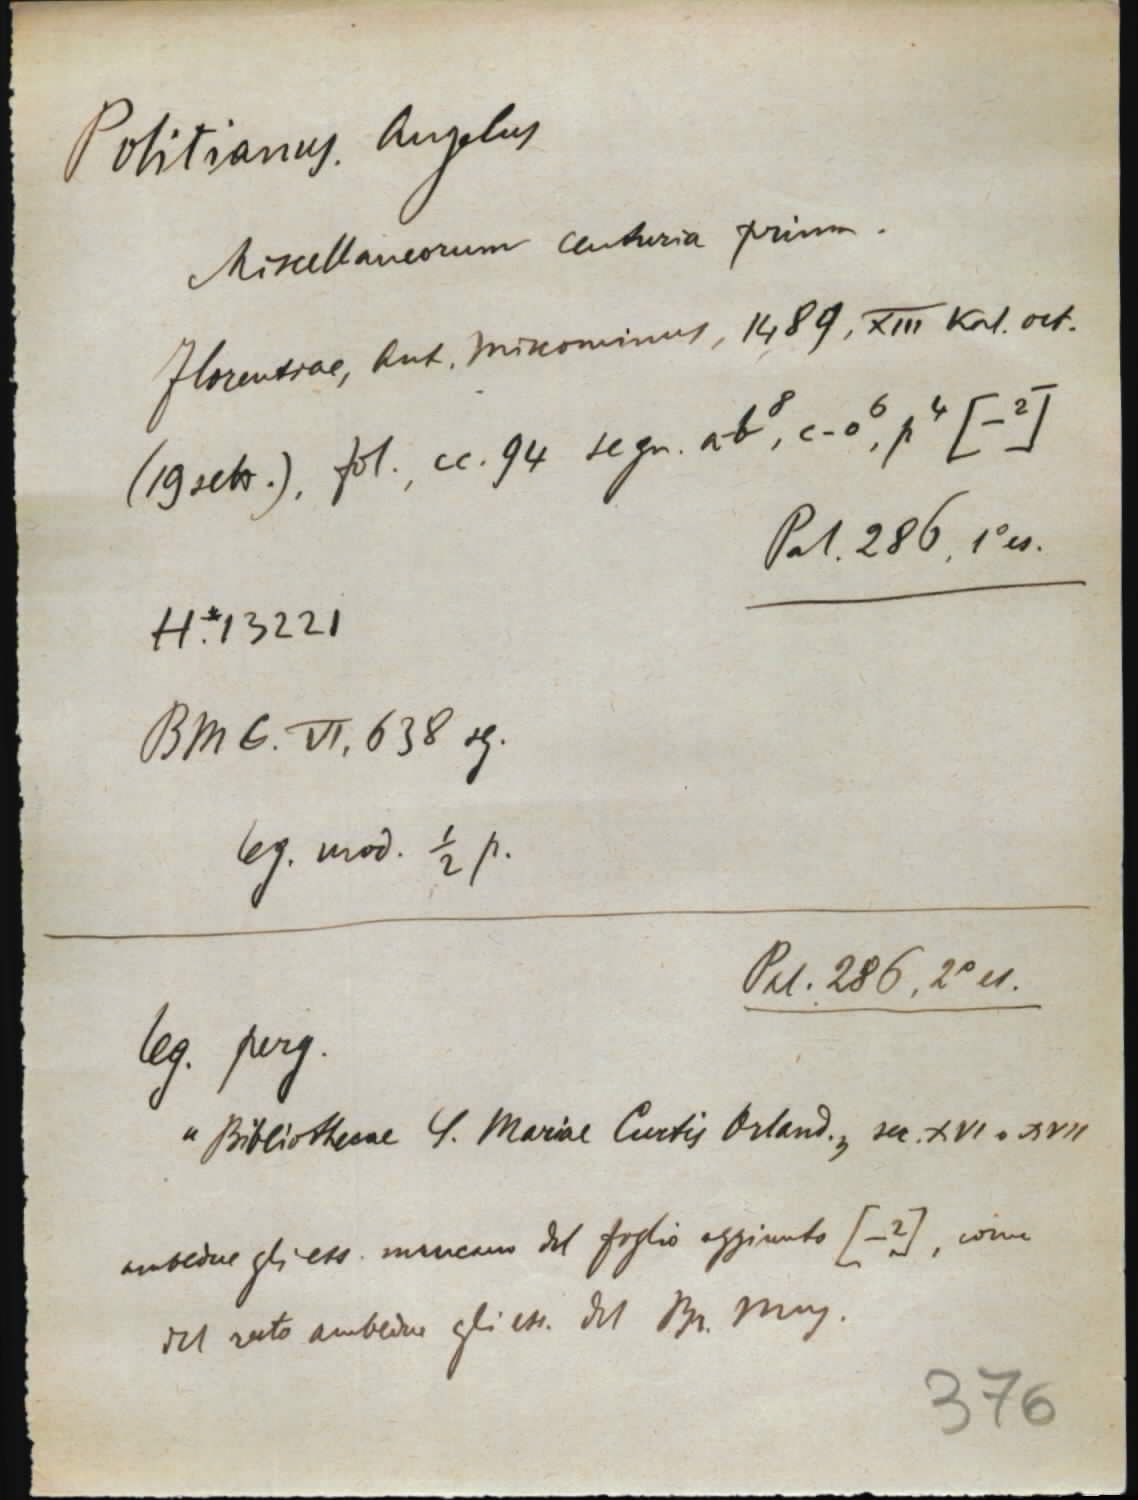 Politianus. Angelus
Miscellaneorum centuria prima.
Florentiae, Ant. Miscominus, 1489, XIII Kal. oct.
(19 sett.), fol., cc. 94 segn. ab⁸, c-o⁶, p⁴ [-²]
Pal. 286, 1° es.
H.*13221
BMC. VI, 638 sg.
leg. mod. ½ p.
Pal. 286, 2° es.
leg. perg.
"Bibliothecae S. Mariae Curtis Orland.„ sec. XVI o XVII
ambedue gli ess. mancano del foglio aggiunto [-²], come
del resto ambedue gli ess. del Br. Mus.
376